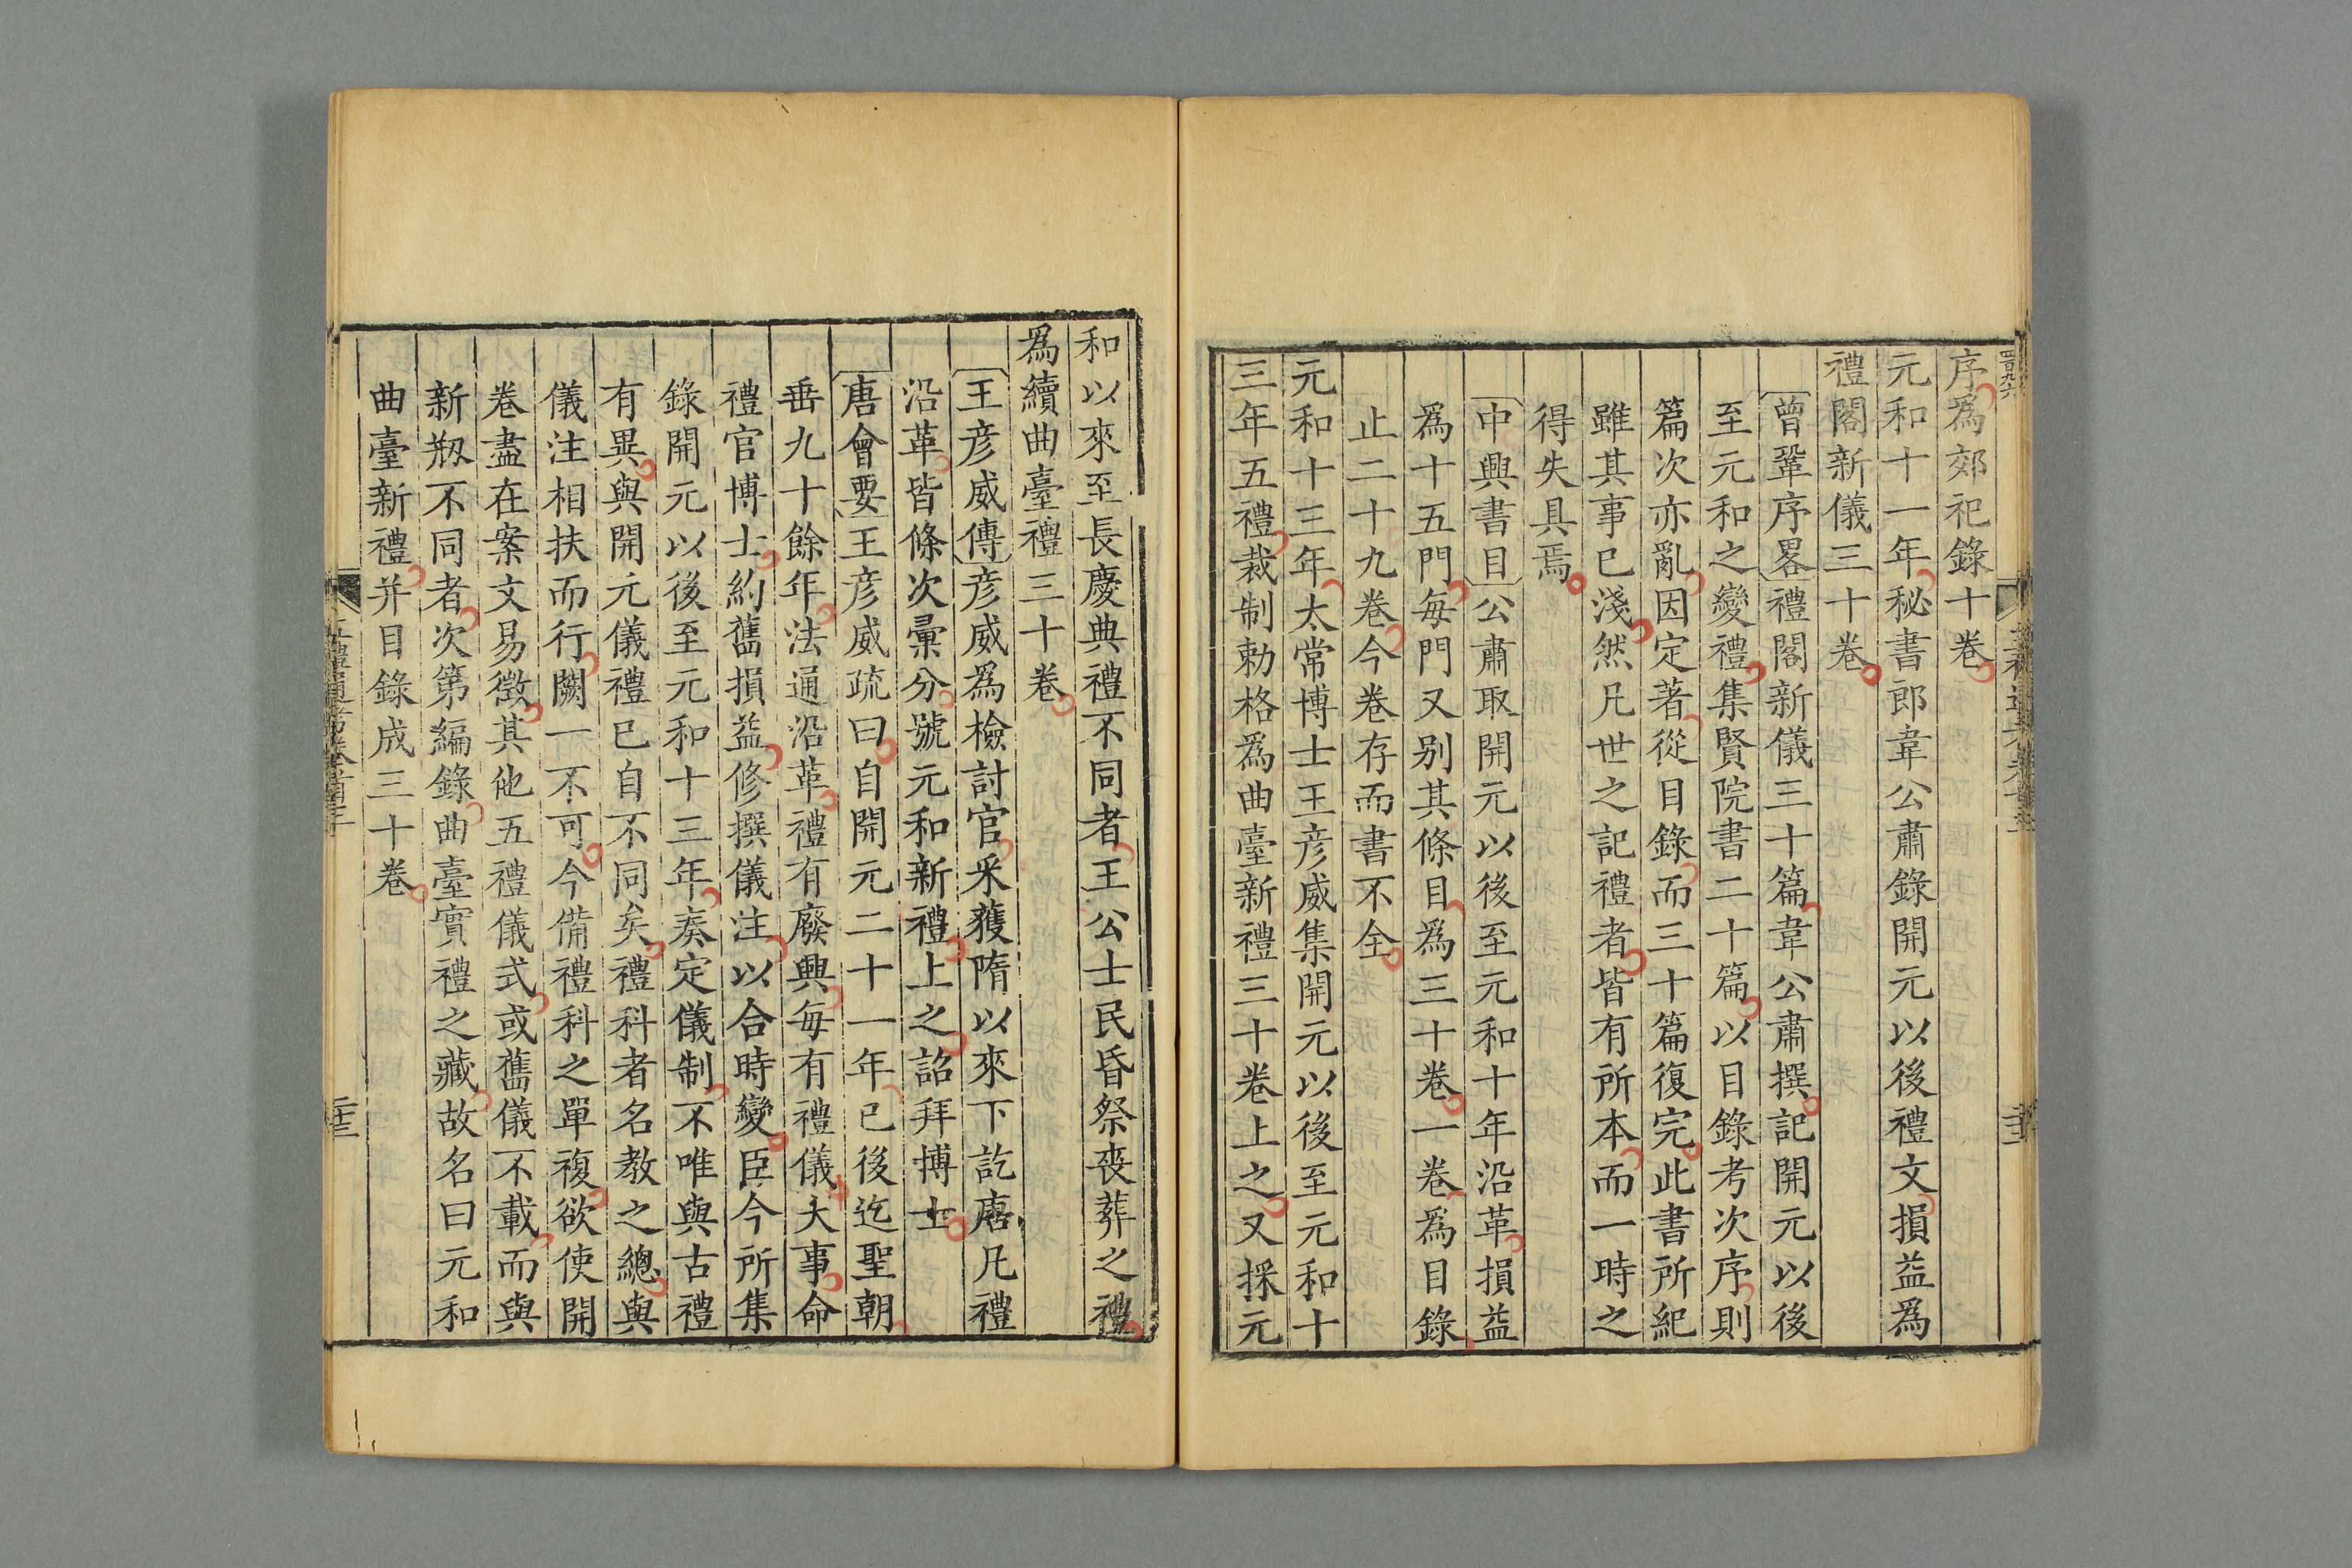 序爲郊祀錄十卷
元和十一年秘書郎韋公肅錄開元以後禮文損益爲
禮閣新儀三十卷
曾鞏序畧禮閣新儀三十篇韋公肅撰記開元以後
至元和之變禮集賢院書二十篇以目錄考次序則
篇次亦亂因定著從目錄而三十篇復完此書所紀
雖其事已淺然凡世之記禮者皆有所本而一時之
得失具焉
中興書目公肅取開元以後至元和十年沿革損益
爲十五門每門又别其條目爲三十卷一卷爲目錄
止二十九卷今卷存而書不全
元和十三年太常博士王彦威集開元以後至元和十
三年五禮裁制勅格爲曲臺新禮三十卷上之又採元
和以來至長慶典禮不同者王公士民昏祭喪葬之禮
爲續曲臺禮三十卷
王彦威傳彦威爲檢討官采獲隋以來下訖唐凡禮
沿革皆條次彚分號元和新禮上之詔拜博士
唐會要王彦威疏曰自開元二十一年已後迄聖朝
垂九十餘年法通沿革禮有廢興每有禮儀大事命
禮官博士約舊損益修撰儀注以合時變臣今所集
錄開元以後至元和十三年奏定儀制不唯與古禮
有異與開元儀禮已自不同矣禮科者名教之總與
儀注相扶而行闕一不可今備禮科之單複欲使開
卷盡在案文易徵其他五禮儀式或舊儀不載而與
新剏不同者次第編錄曲臺實禮之藏故名曰元和
曲臺新禮并目錄成三十卷